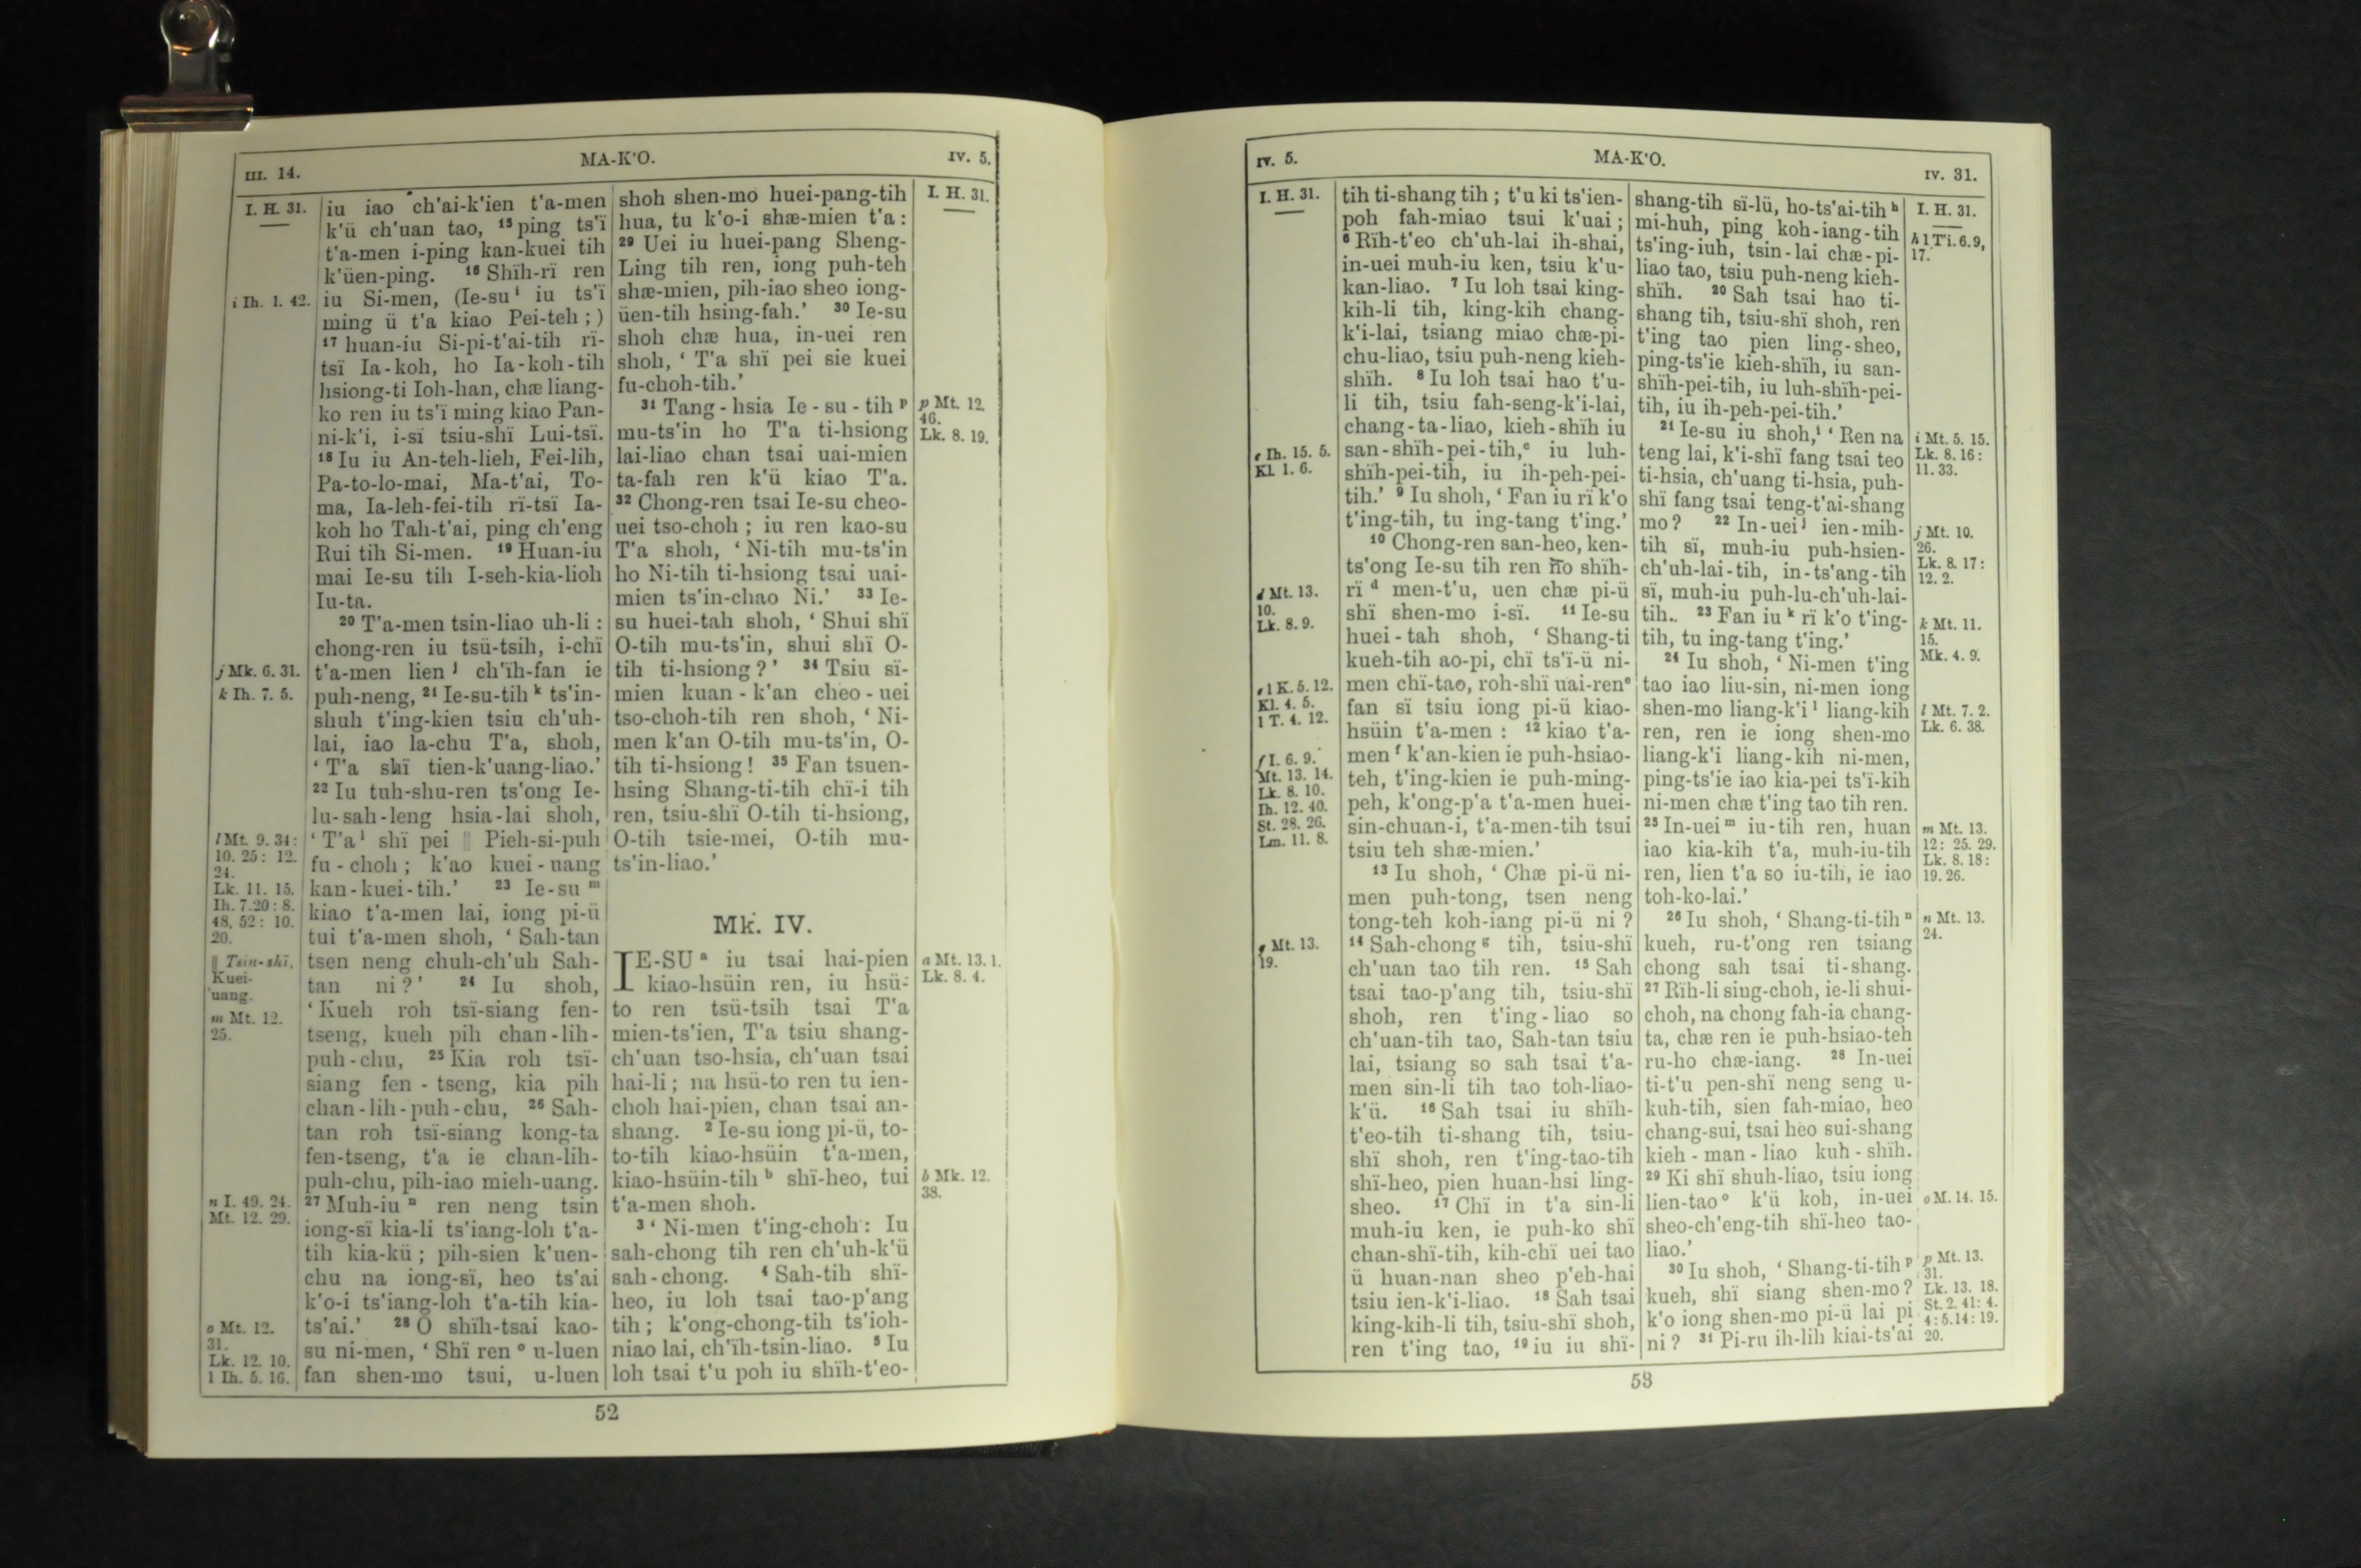 III. 14.
MA-K'O.
IV. 5.
I. H. 31.
i Ih. 1. 42.
j Mk. 6. 31.
k Ih. 7. 5.
l Mt. 9. 34:
10. 25: 12.
24.
Lk. 11. 15.
Ih. 7.20: 8.
48, 52: 10.
20.
‖ Tsin-shï,
Kuei-
uang.
m Mt. 12.
25.
n I. 49. 24.
Mt. 12. 29.
o Mt. 12.
31.
Lk. 12. 10.
1 Ih. 5. 16.
iu iao ch'ai-k'ien t'a-men
k'ü ch'uan tao, 15 ping ts'ï
t'a-men i-ping kan-kuei tih
k'üen-ping. 16 Shïh-rï ren
iu Si-men, (Ie-su i iu ts'ï
ming ü t'a kiao Pei-teh;)
17 huan-iu Si-pi-t'ai-tih rï-
tsï Ia-koh, ho Ia-koh-tih
hsiong-ti Ioh-han, chæ liang-
ko ren iu ts'ï ming kiao Pan-
ni-k'i, i-sï tsiu-shï Lui-tsï.
18 Iu iu An-teh-lieh, Fei-lih,
Pa-to-lo-mai, Ma-t'ai, To-
ma, Ia-leh-fei-tih rï-tsï Ia-
koh ho Tah-t'ai, ping ch'eng
Rui tih Si-men. 19 Huan-iu
mai Ie-su tih I-seh-kia-lioh
Iu-ta.
20 T'a-men tsin-liao uh-li:
chong-ren iu tsü-tsih, i-chï
t'a-men lien j ch'ïh-fan ie
puh-neng, 21 Ie-su-tih k ts'in-
shuh t'ing-kien tsiu ch'uh-
lai, iao la-chu T'a, shoh,
‘T'a shï tien-k'uang-liao.’
22 Iu tuh-shu-ren ts'ong Ie-
lu-sah-leng hsia-lai shoh,
‘T'a l shï pei ‖ Pieh-si-puh
fu-choh; k'ao kuei-uang
kan-kuei-tih.’ 23 Ie-su m
kiao t'a-men lai, iong pi-ü
tui t'a-men shoh, ‘Sah-tan
tsen neng chuh-ch'uh Sah-
tan ni?’ 24 Iu shoh,
‘Kueh roh tsï-siang fen-
tseng, kueh pih chan-lih-
puh-chu, 25 Kia roh tsï-
siang fen-tseng, kia pih
chan-lih-puh-chu, 26 Sah-
tan roh tsï-siang kong-ta
fen-tseng, t'a ie chan-lih-
puh-chu, pih-iao mieh-uang.
27 Muh-iu n ren neng tsin
iong-sï kia-li ts'iang-loh t'a-
tih kia-kü; pih-sien k'uen-
chu na iong-sï, heo ts'ai
k'o-i ts'iang-loh t'a-tih kia-
ts'ai.’ 28 O shïh-tsai kao-
su ni-men, ‘Shï ren o u-luen
fan shen-mo tsui, u-luen
shoh shen-mo huei-pang-tih
hua, tu k'o-i shæ-mien t'a:
29 Uei iu huei-pang Sheng-
Ling tih ren, iong puh-teh
shæ-mien, pih-iao sheo iong-
üen-tih hsing-fah.’ 30 Ie-su
shoh chæ hua, in-uei ren
shoh, ‘T'a shï pei sie kuei
fu-choh-tih.’
31 Tang-hsia Ie-su-tih p
mu-ts'in ho T'a ti-hsiong
lai-liao chan tsai uai-mien
ta-fah ren k'ü kiao T'a.
32 Chong-ren tsai Ie-su cheo-
uei tso-choh; iu ren kao-su
T'a shoh, ‘Ni-tih mu-ts'in
ho Ni-tih ti-hsiong tsai uai-
mien ts'in-chao Ni.’ 33 Ie-
su huei-tah shoh, ‘Shui shï
O-tih mu-ts'in, shui shï O-
tih ti-hsiong?’ 34 Tsiu sï-
mien kuan-k'an cheo-uei
tso-choh-tih ren shoh, ‘Ni-
men k'an O-tih mu-ts'in, O-
tih ti-hsiong! 35 Fan tsuen-
hsing Shang-ti-tih chï-i tih
ren, tsiu-shï O-tih ti-hsiong,
O-tih tsie-mei, O-tih mu-
ts'in-liao.’
Mk. IV.
IE-SU a iu tsai hai-pien
kiao-hsüin ren, iu hsü-
to ren tsü-tsih tsai T'a
mien-ts'ien, T'a tsiu shang-
ch'uan tso-hsia, ch'uan tsai
hai-li; na hsü-to ren tu ien-
choh hai-pien, chan tsai an-
shang. 2 Ie-su iong pi-ü, to-
to-tih kiao-hsüin t'a-men,
kiao-hsüin-tih b shï-heo, tui
t'a-men shoh.
3 ‘Ni-men t'ing-choh: Iu
sah-chong tih ren ch'uh-k'ü
sah-chong. 4 Sah-tih shï-
heo, iu loh tsai tao-p'ang
tih; k'ong-chong-tih ts'ioh-
niao lai, ch'ïh-tsin-liao. 5 Iu
loh tsai t'u poh iu shïh-t'eo-
I. H. 31.
p Mt. 12.
46.
Lk. 8. 19.
a Mt. 13. 1.
Lk. 8. 4.
b Mk. 12.
38.
52
IV. 5.
MA-K'O.
IV. 31.
I. H. 31.
c Ih. 15. 5.
Kl. 1. 6.
d Mt. 13.
10.
Lk. 8. 9.
e 1 K. 5. 12.
Kl. 4. 5.
1 T. 4. 12.
f I. 6. 9.
Mt. 13. 14.
Lk. 8. 10.
Ih. 12. 40.
St. 28. 26.
Lm. 11. 8.
g Mt. 13.
19.
tih ti-shang tih; t'u ki ts'ien-
poh fah-miao tsui k'uai;
6 Rïh-t'eo ch'uh-lai ih-shai,
in-uei muh-iu ken, tsiu k'u-
kan-liao. 7 Iu loh tsai king-
kih-li tih, king-kih chang-
k'i-lai, tsiang miao chæ-pi-
chu-liao, tsiu puh-neng kieh-
shïh. 8 Iu loh tsai hao t'u-
li tih, tsiu fah-seng-k'i-lai,
chang-ta-liao, kieh-shïh iu
san-shïh-pei-tih, c iu luh-
shïh-pei-tih, iu ih-peh-pei-
tih.’ 9 Iu shoh, ‘Fan iu rï k'o
t'ing-tih, tu ing-tang t'ing.’
10 Chong-ren san-heo, ken-
ts'ong Ie-su tih ren ho shïh-
rï d men-t'u, uen chæ pi-ü
shï shen-mo i-sï. 11 Ie-su
huei-tah shoh, ‘Shang-ti
kueh-tih ao-pi, chï ts'ï-ü ni-
men chï-tao, roh-shï uai-ren e
fan sï tsiu iong pi-ü kiao-
hsüin t'a-men: 12 kiao t'a-
men f k'an-kien ie puh-hsiao-
teh, t'ing-kien ie puh-ming-
peh, k'ong-p'a t'a-men huei-
sin-chuan-i, t'a-men-tih tsui
tsiu teh shæ-mien.’
13 Iu shoh, ‘Chæ pi-ü ni-
men puh-tong, tsen neng
tong-teh koh-iang pi-ü ni?
14 Sah-chong g tih, tsiu-shï
ch'uan tao tih ren. 15 Sah
tsai tao-p'ang tih, tsiu-shï
shoh, ren t'ing-liao so
ch'uan-tih tao, Sah-tan tsiu
lai, tsiang so sah tsai t'a-
men sin-li tih tao toh-liao-
k'ü. 16 Sah tsai iu shïh-
t'eo-tih ti-shang tih, tsiu-
shï shoh, ren t'ing-tao-tih
shï-heo, pien huan-hsi ling-
sheo. 17 Chï in t'a sin-li
muh-iu ken, ie puh-ko shï
chan-shï-tih, kih-chï uei tao
ü huan-nan sheo p'eh-hai
tsiu ien-k'i-liao. 18 Sah tsai
king-kih-li tih, tsiu-shï shoh,
ren t'ing tao, 19 iu iu shï-
shang-tih sï-lü, ho-ts'ai-tih h
mi-huh, ping koh-iang-tih
ts'ing-iuh, tsin-lai chæ-pi-
liao tao, tsiu puh-neng kieh-
shïh. 20 Sah tsai hao ti-
shang tih, tsiu-shï shoh, ren
t'ing tao pien ling-sheo,
ping-ts'ie kieh-shïh, iu san-
shïh-pei-tih, iu luh-shïh-pei-
tih, iu ih-peh-pei-tih.’
21 Ie-su iu shoh, i ‘Ren na
teng lai, k'i-shï fang tsai teo
ti-hsia, ch'uang ti-hsia, puh-
shï fang tsai teng-t'ai-shang
mo? 22 In-uei j ien-mih-
tih sï, muh-iu puh-hsien-
ch'uh-lai-tih, in-ts'ang-tih
sï, muh-iu puh-lu-ch'uh-lai-
tih. 23 Fan iu k rï k'o t'ing-
tih, tu ing-tang t'ing.’
24 Iu shoh, ‘Ni-men t'ing
tao iao liu-sin, ni-men iong
shen-mo liang-k'i l liang-kih
ren, ren ie iong shen-mo
liang-k'i liang-kih ni-men,
ping-ts'ie iao kia-pei ts'ï-kih
ni-men chæ t'ing tao tih ren.
25 In-uei m iu-tih ren, huan
iao kia-kih t'a, muh-iu-tih
ren, lien t'a so iu-tih, ie iao
toh-ko-lai.’
26 Iu shoh, ‘Shang-ti-tih n
kueh, ru-t'ong ren tsiang
chong sah tsai ti-shang.
27 Rïh-li sing-choh, ie-li shui-
choh, na chong fah-ia chang-
ta, chæ ren ie puh-hsiao-teh
ru-ho chæ-iang. 28 In-uei
ti-t'u pen-shï neng seng u-
kuh-tih, sien fah-miao, heo
chang-sui, tsai heo sui-shang
kieh-man-liao kuh-shïh.
29 Ki shï shuh-liao, tsiu iong
lien-tao o k'ü koh, in-uei
sheo-ch'eng-tih shï-heo tao-
liao.’
30 Iu shoh, ‘Shang-ti-tih p
kueh, shï siang shen-mo?
k'o iong shen-mo pi-ü lai pi
ni? 31 Pi-ru ih-lih kiai-ts'ai
I. H. 31.
h 1 Ti. 6. 9,
17.
i Mt. 5. 15.
Lk. 8. 16:
11. 33.
j Mt. 10.
26.
Lk. 8. 17:
12. 2.
k Mt. 11.
15.
Mk. 4. 9.
l Mt. 7. 2.
Lk. 6. 38.
m Mt. 13.
12: 25. 29.
Lk. 8. 18:
19. 26.
n Mt. 13.
24.
o M. 14. 15.
p Mt. 13.
31.
Lk. 13. 18.
St. 2. 41: 4.
4: 5.14: 19.
20.
53